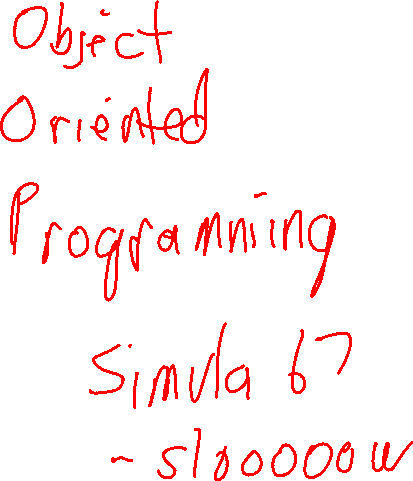 Object
Oriented
Programming
Simula 67
- slooooow